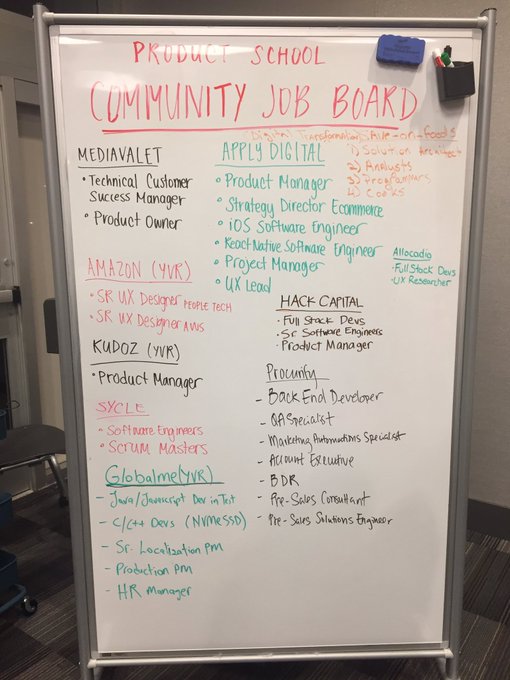 PRODUCT SCHOOL
COMMUNITY JOB BOARD
(Digital Transformation) Save-on-foods
1) Solution Architect
2) Analysts
3) Programmers
4) Cooks
MEDIAVALET
• Technical Customer
Success Manager
• Product Owner
APPLY DIGITAL
• Product Manager
• Strategy Director Ecommerce
• iOS Software Engineer
• React Native Software Engineer
• Project Manager
• UX Lead
Allocadia
• Full Stack Devs
• UX Researcher
AMAZON (YVR)
• SR UX Designer PEOPLE TECH
• SR UX Designer AWS
HACK CAPITAL
• Full Stack Devs
• Sr Software Engineers
• Product Manager
KUDOZ (YVR)
• Product Manager
SYCLE
• Software Engineers
• Scrum Masters
Procurify
- Back End Developer
- QA Specialist
- Marketing Automations Specialist
- Account Executive
- BDR
- Pre-Sales Consultant
- Pre-Sales Solutions Engineer
Globalme (YVR)
- Java/Javascript Dev in Test
- C/C++ Devs (NVMe SSD)
- Sr. Localization PM
- Production PM
- HR Manager